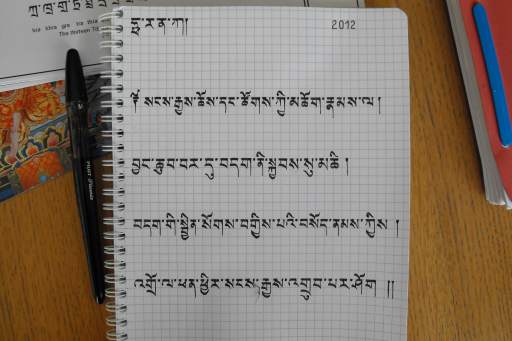 The thirteen
2012
སངས་རྒྱས་ཆོས་དང་ཚོགས་ཀྱི་མཆོག་རྣམས་ལ །
བྱང་ཆུབ་བར་དུ་བདག་ནི་སྐྱབས་སུ་མཆི །
བདག་གི་སྦྱིན་སོགས་བགྱིས་པའི་བསོད་ནམས་ཀྱིས །
འགྲོ་ལ་ཕན་ཕྱིར་སངས་རྒྱས་འགྲུབ་པར་ཤོག །།